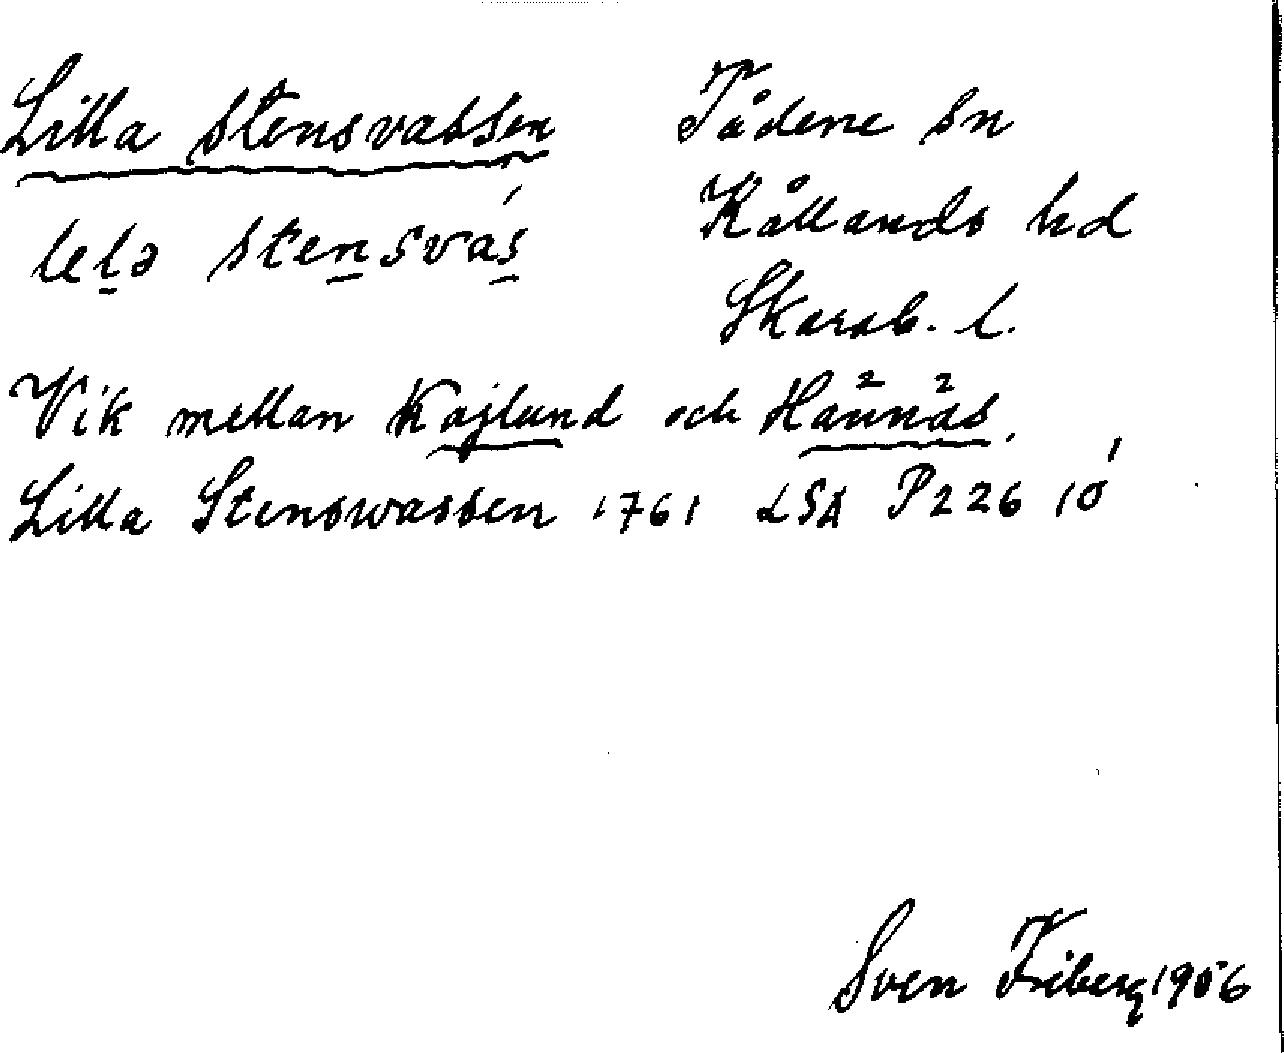 Lilla Stensvassen
Tådene sn
lelə stensvás
Kållands hd
Skarab. l.
Vik mellan Kajlund och Hännäs.
Lilla Stenswassen 1761 LSA P226 10¹
Sven Friberg 1956